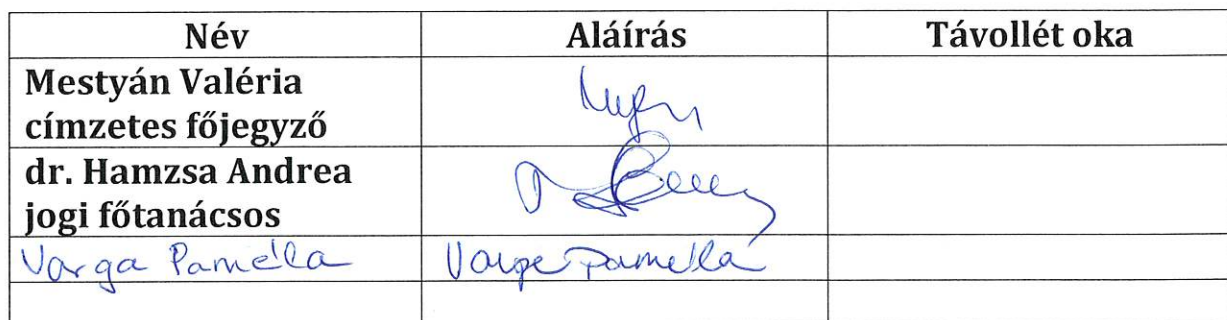 Név Aláírás Távollét oka
Mestyán Valéria
címzetes főjegyző
dr. Hamzsa Andrea
jogi főtanácsos
Varga Pamella Varga Pamella